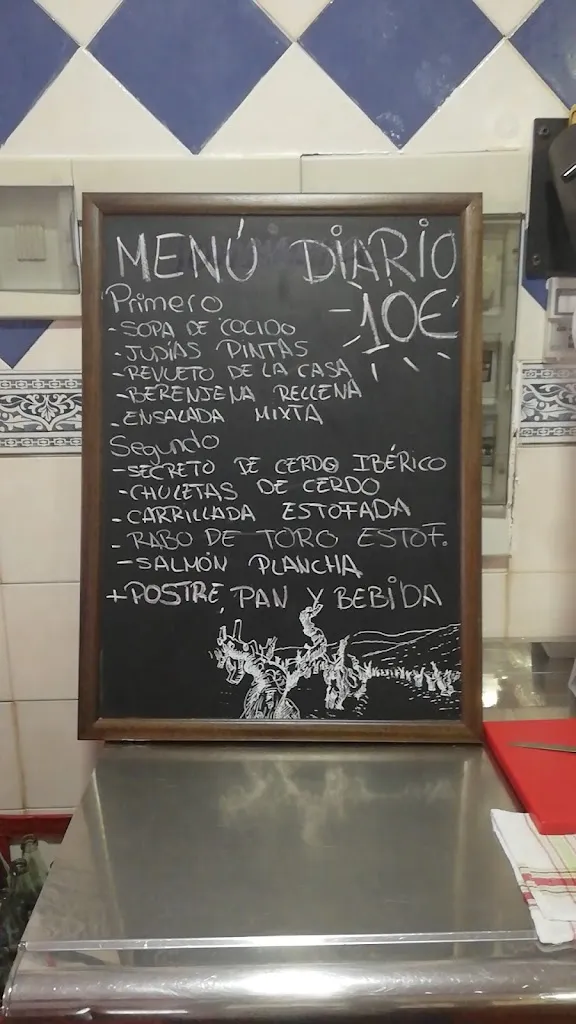 MENÚ DIARIO
10€
Primero
-SOPA DE COCIDO
-JUDÍAS PINTAS
-REVUETO DE LA CASA
-BERENJENA RELLENA
-ENSALADA MIXTA
Segundo
-SECRETO DE CERDO IBÉRICO
-CHULETAS DE CERDO
-CARRILLADA ESTOFADA
-RABO DE TORO ESTOF.
-SALMÓN PLANCHA
+POSTRE, PAN Y BEBIDA